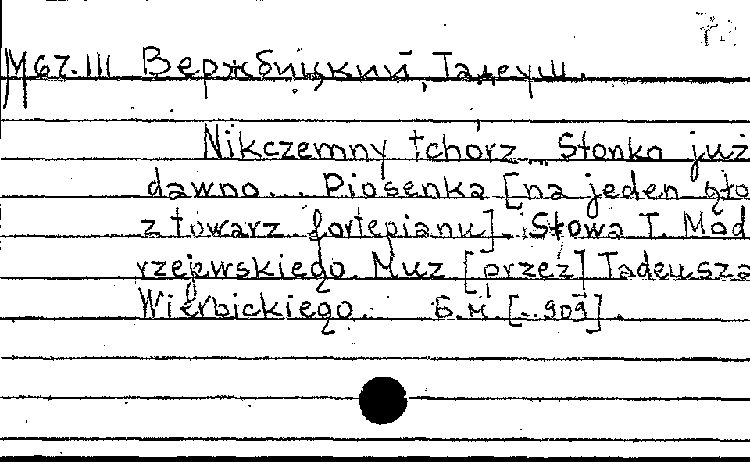 M67.III Вержбицкий, Тадеуш.
Nikczemny tchórz... Słonko już
dawno... Piosenka [na jeden gło
z towarz fortepianu]. Słowa T. Mod
rzejewskiego. Muz [przez] Tadeusza
Wierbickiego. Б.м. [..909].